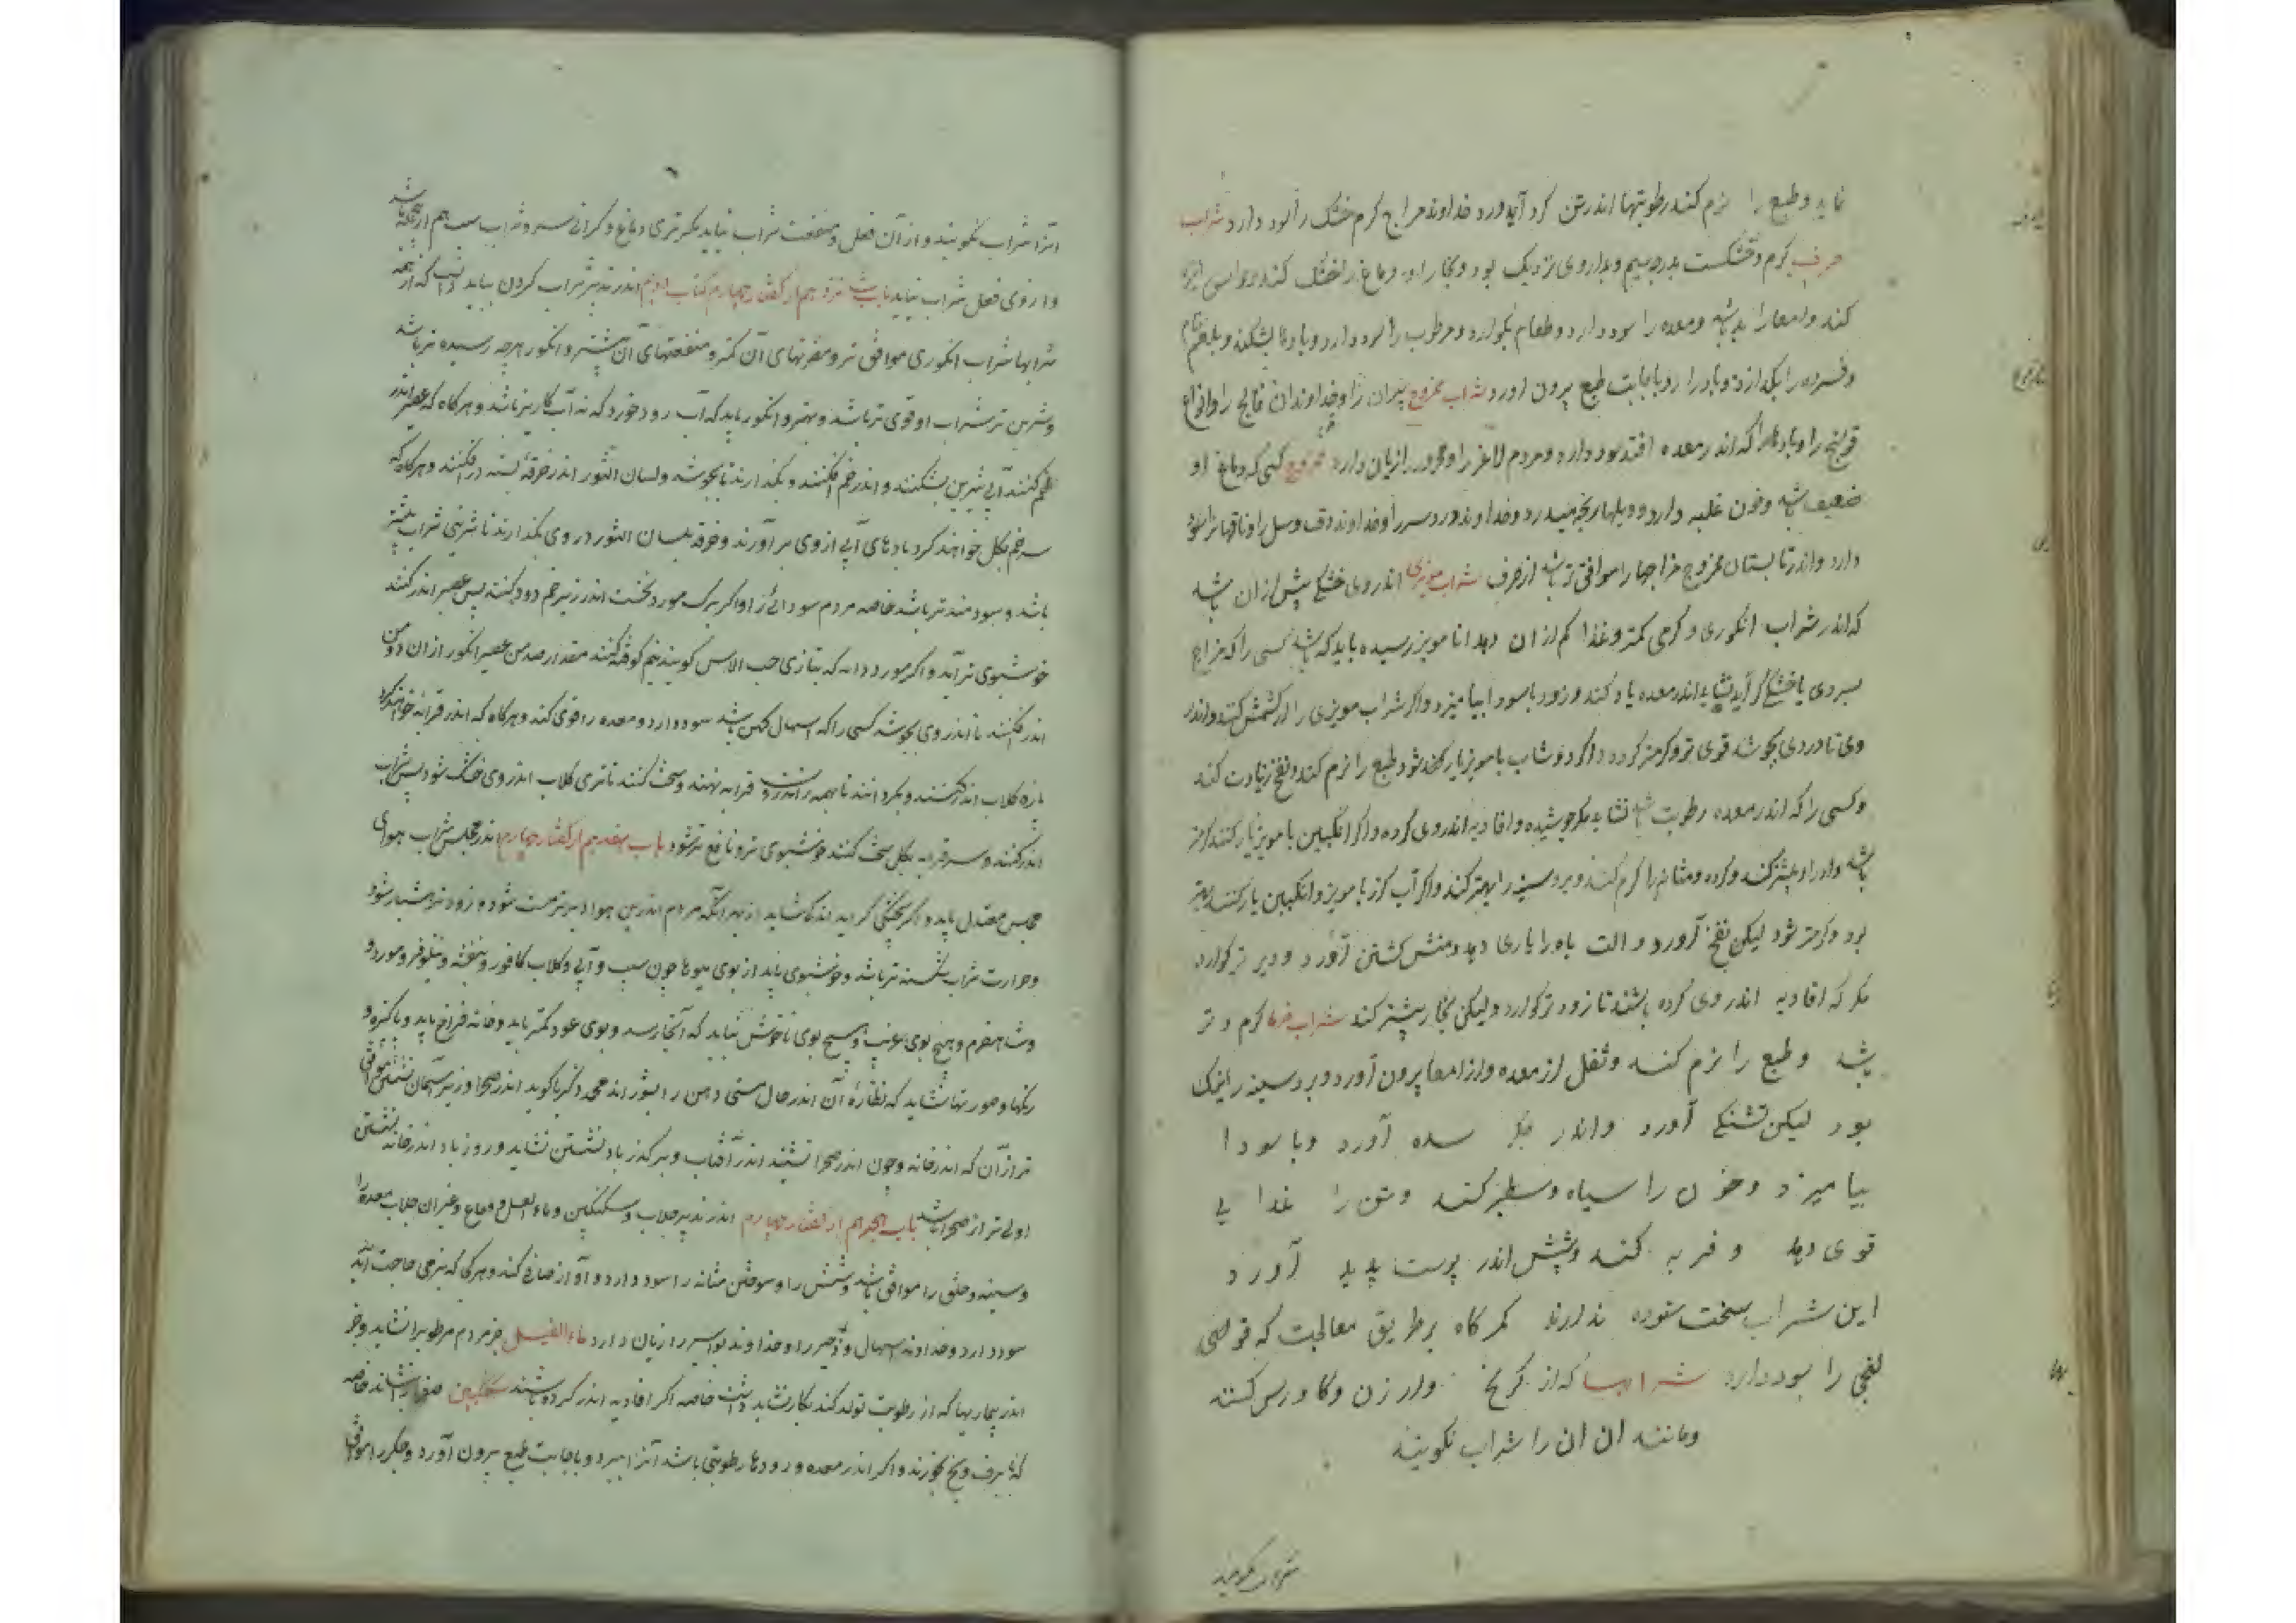 نماید وطبع را نرم کند رطوبتها اندر تن کرد آید ورد خداوند مزاج کرم خشک را سود دارد شراب
صرف کرم وخشکست بدرجه سیم وبداروی نزدیک بود وبخار او دماغ را خشک کند
کند وامعا را بد باشد ومعده را سود دارد وطعام بکوارد ومرطوب را سود دارد وبادها بشکند وبلغم خام
وفسرده را بکدازد وبادرار وباجابت طبع بیرون آورد شراب ممزوج پیران را وخداوندان فالج را وانواع
قولنج را وبادها را که اندر معده افتد سود دارد ومردم لاغر را ومحرور را زیان دارد ممزوج کسی که دماغ او
ضعیف باشد وخون غلبه دارد ودیلها وخداوند درد سر را وخداوند دق وسل را وناقهانرا سود
دارد واندر تابستان ممزوج مزاجها را موافق تر باشد از صرف شراب مویزی اندر وی خشکی بیش از ان باشد
که اندر شراب انکوری وکرمی کمتر وغذا کم از ان دهد اما مویز رسیده باید که باشد کسی را که مزاج
بسردی یا خشکی کراید نشاید اندر معده باد کند وزود با سودا بیامیزد واکر شراب مویزی را از کشمش کنند واندر
وی تا دردی بجوشد قوی تر وکرمتر کردد واکر دوشاب با مویز یار کنند طبع را نرم کند ونفخ زیادت کند
وکسی را که اندر معده رطوبت باشد نشاید مکر جوشیده وافاویه اندر وی کرده واکر انکبین با مویز یار کنند کرمتر
باشد وادرار بیشتر کند وکرده ومثانه را کرم کند وبر وسینه را بهتر کند واکر آب کزر با مویز وانکبین یار کنند بهتر
بود وکرمتر شود لیکن نفخ آورد والت باه را یاری دهد ومنش کشتن آورد ودیر تر کوارد
مکر که افاویه اندر وی کرده باشند تا زود تر کوارد ولیکن بخار بیشتر کند شراب خرما کرم وتر
باشد وطبع را نرم کند وثفل از معده واز امعا بیرون آورد وبر وسینه را نیک
بود لیکن تشنکی آورد واندر جکر سده آورد وبا سودا
بیامیزد وخون را سیاه وسطبر کند وتن را غذایی
قوی دهد وفربه کند وشپش اندر پوست پدید آورد
این شراب سخت ستوده ندارند مکر کاه بر طریق معالجت که قولنج
نفخی را سود دارد شرابها که از کرنج وارزن وکاورس کنند
ومانند ان ان را شراب نکویند
شراب نکویند
آنرا شراب نکویند واز آن فعل ومنفعت شراب نیاید مکر تری دماغ وکرانی سر وشراب سیب هم ازین جمله باشد
واز وی فعل شراب نیاید باب شانزدهم از کفتار چهارم کتاب سوم اندر تدبیر شراب کردن بباید دانست که از همه
شرابها شراب انکوری موافق تر ومضرتهای آن کمتر ومنفعتهای آن بیشتر وانکور هر چه رسیده تر باشد
وشیرین تر شراب او قوی تر باشد وبهتر وانکور باید که آب رود خورد که نه آب کاریز باشد وهر کاه که عصیر اندر
خم کنند آبی شیرین بشکنند واندر خم افکنند وبکذارند تا بجوشد ولسان الثور اندر خرقه بسته در افکنند وهر کاه که
سر خم بکل خواهند کرد بادهای آبی از وی بر آورند وخرقه لسان الثور در وی بکذارند تا شیرینی شراب بیشتر
باشد وسودمند تر باشد خاصه مردم سودائی را واکر برک مورد نخست اندر زیر خم دود کنند پس عصیر اندر کنند
خوشبوی تر آید واکر مورد دانه که بتازی حب الاس کویند نیم کوفته کنند مقدار صد من عصیر انکور از ان دو من
اندر افکنند تا اندر وی بجوشد کسی را که اسهال کهن باشد سود دارد ومعده را قوی کند وهر کاه که اندر قرابه خواهند کرد
پاره کلاب اندر کنند وبکردانند تا همه اندرون قرابه بهنند وسخت کنند تا تری کلاب اندر وی خشک شود پس شراب
اندر کنند وسر قرابه بکل سخت کنند خوشبوی تر ونافع تر شود باب هفدهم از کفتار چهارم اندر مجلس شراب هوای
مجلس معتدل باید واکر بخنکی کراید اندکی شاید از بهر آنکه مردم اندرین هوا دیر تر مست شود وزود تر هشیار شود
وحرارت شراب شکسته تر باشد وخوشبوی باید از بوی میوها چون سیب وآبی وکلاب کافور وبنفشه ونیلوفر ومورد و
وشاهسفرم وهیچ بوی غریب وهیچ بوی ناخوش نباید که آنجا رسد وبوی عود کمتر باید وخانه فراخ باید وپاکیزه و
رنکها وصورتها نشاید که نظاره آن اندر حال مستی ذهن را بشوراند محمد زکریا کوید اندر صحرا وزیر آسمان نشستن موافق
تر از آن که اندر خانه وچون اندر صحرا نشینند اندر آفتاب وبر کذر باد نشستن نشاید وروز باد اندر خانه نشستن
اولی تر از صحرا باشد باب هجدهم از کفتار چهارم اندر تدبیر جلاب وسکنکبین وماء العسل وفقاع وغیر آن جلاب معده را
وسینه وحلق را موافق باشد وشش را وسوختن مثانه را سود دارد وآواز صافی کند وهر کجا که بنرمی حاجت آید
سود دارد وخداوند اسهال وزحیر را وخداوند بواسیر را زیان دارد ماء العسل جز مردم مرطوب را نشاید وجز
اندر بیماریها که از رطوبت تولد کند بکار نشاید داشت خاصه اکر افاویه اندر کرده باشند سکنکبین صفرا بنشاند خاصه
که با برف ویخ بخورند واکر اندر معده ورودها رطوبتی باشد آنرا ببرد وباجابت طبع بیرون آورد وجکر را موافق